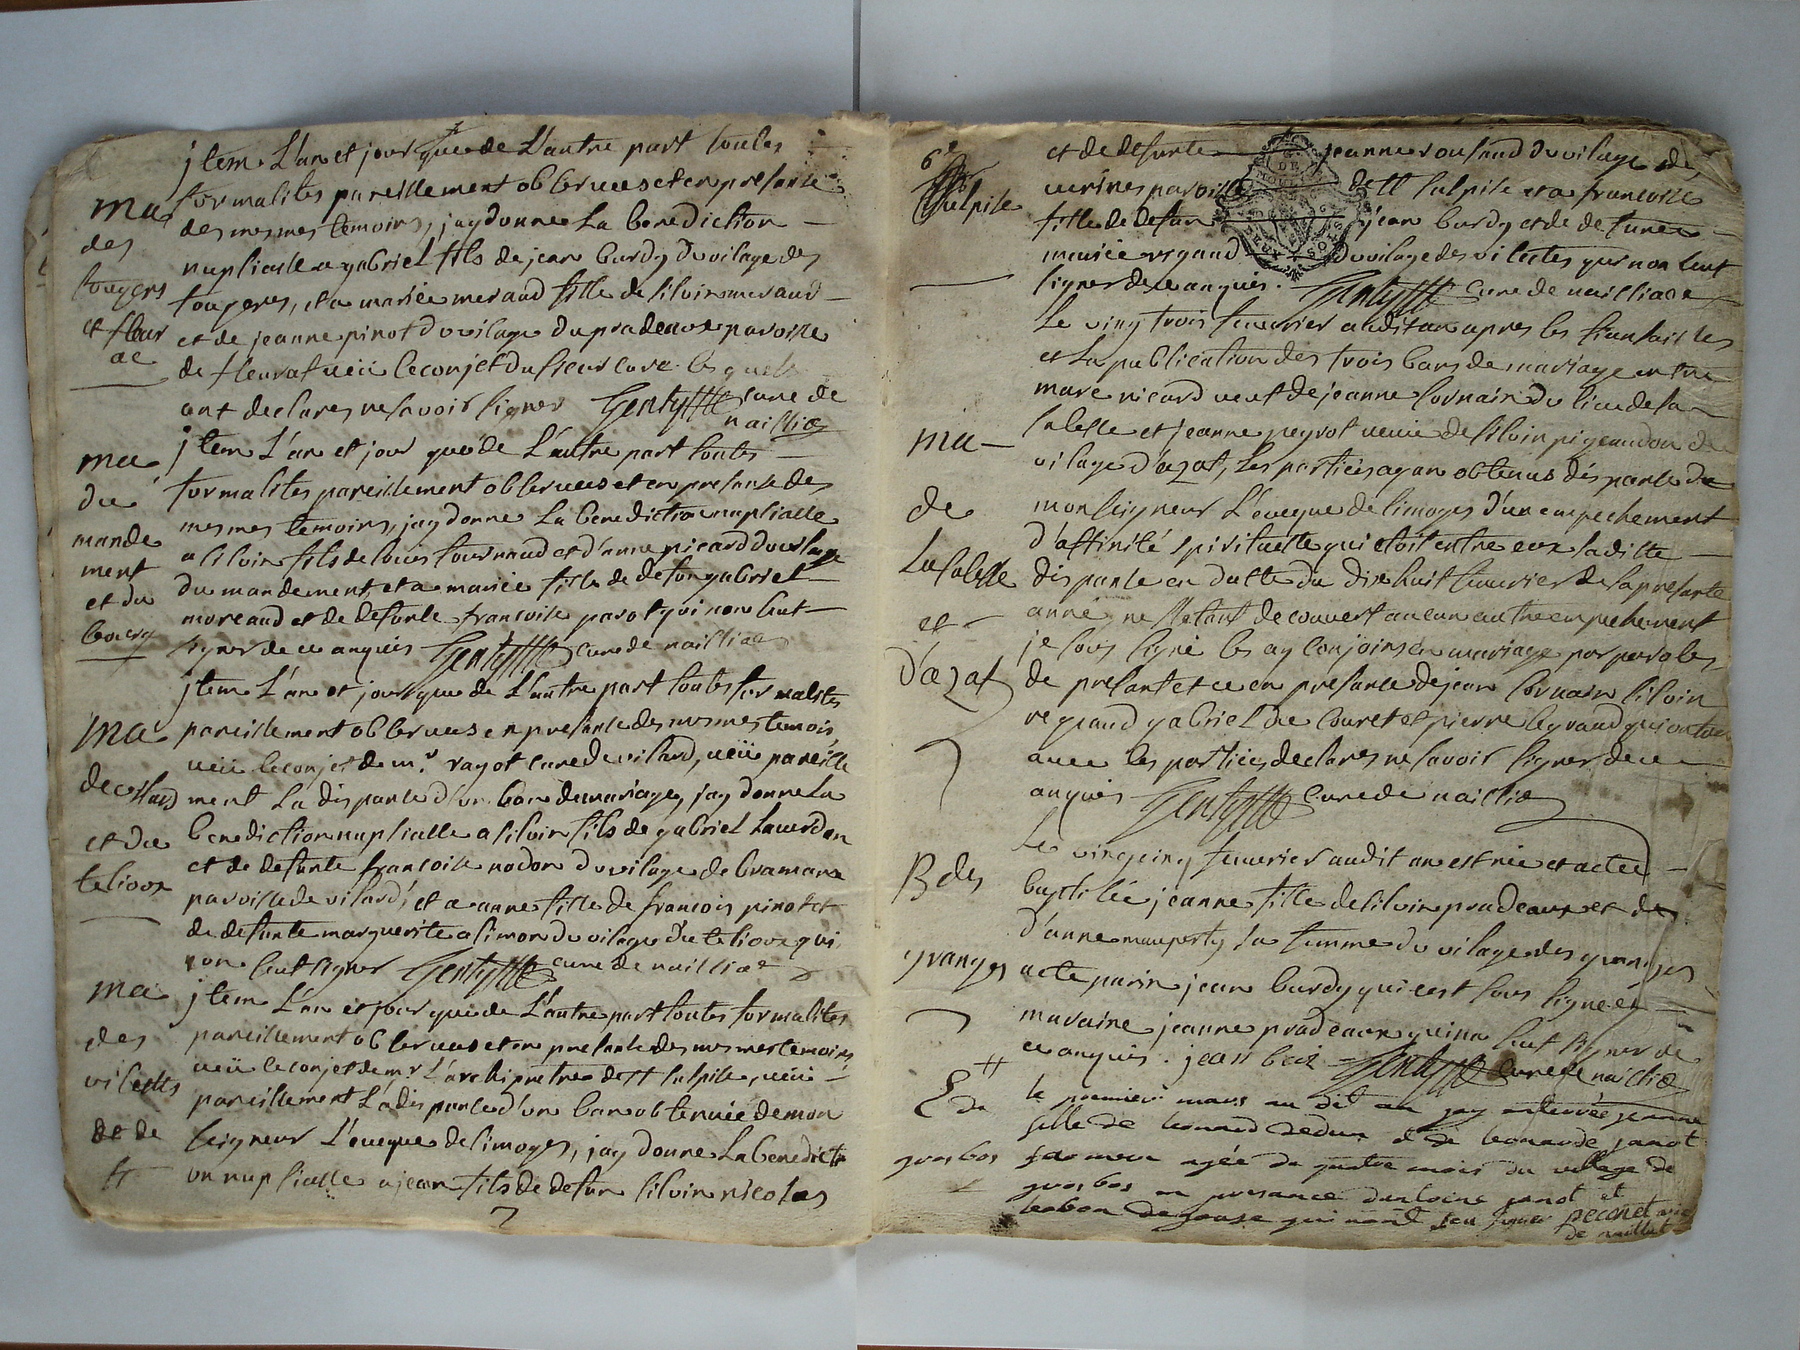 jtem L'an et jour que de L'autre part toutes
formalites pareillement observees et en presance
ma
des mesmes temoins, jay donne La benediction
des
nuptialle a gabriel fils de jean burdy du vilage des
fougers
fougeres, et a mariée meraud fille de silvin meraud
et fleur
et de jeanne pinot du vilage du pradeaux paroisse
ac
de fleurat veü le conjet du sieur cure lesquels
ont declares ne savoir signer Gentyttt cure de
naillac
ma
jtem L'an et jour que de L'autre part toutes
du
formalites pareillement observees et en presance des
mande
mesmes temoins, jay donne La benediction nuptialle
ment
a silvin fils de louis tournaud et d'anne picard du vilage
et du
du mandement, et a mariée fille de defun gabriel
bourg
moreaud et de defunte francoise parot qui non sut
signer de ce anquis Gentyttt cure de naillac
jtem L'an et jour que de L'autre part toutes formalites
ma
pareillement observees en presance des mesmes temois
veü le conjet de mr. rayot cure de vilard, veü pareille
de vilard
ment La dispance d'un ban de mariage, jay donne La
et du
benediction nuptialle a silvin fils de gabriel Laverdan
et de defunte francoise nadon du vilage de bramara
telioux
paroisse de vilard, et a anne fille de francois pinot et
de defunte marguerite alimon du vilage du telioux qui
non sut signer Gentyttt cure de naillac
ma
jtem L'an et jour que de L'autre part toutes formalites
des
pareillement observees et en presance des mesmes temoins
veü le conjet de mr L'archipretre de st sulpise, veü
vilestes
pareillement La dispance d'un ban obtenüe de mon
et de
seigneur L'eveque de limoges, jay donne La benedicti
st
on nuptialle a jean fils de defun silvin nicolas
6e
sulpise
et de defunte jeanne rousaud du vilage de
verines paroisse de st sulpise et a francoise
fille de defun jean burdy et de defunte
mariée rigaud du vilage des vilestes qui non sut
signer de ce anquis. Gentyttt cure de naillac
Le vingt trois fevrier audit an apres les fiansailles
et La publication des trois bans de mariage entre
marc nicard veuf de jeanne cornain du lieu de la
ma
salesse et jeanne peyrot veuve de silvin pigeaudon du
vilage d'azat, Les parties ayan obtenus dispance de
de
monseigneur L'eveque de limoges d'un empechement
d'affinité spirituelle qui etoit entre eux ladite
La salesse
dispance en datte du dix huit fevrier de la presante
et
anné, ne s'etant decouvert aucun autre empechement
je sous signé les ay conjoins en mariage par paroles
d'azat
de presant et ce en presance de jean cornain silvin
regaud gabriel du couret et pierre legrand qui ont
avec les parties declares ne savoir signer de ce
anquis Gentyttt cure de naillac
Le vingcinq fevrier audit an est née et a eté
B des
baptisée jeanne fille de silvin pradeaux et de
d'anne mauperty sa femme du vilage des granges
granges
a ete parin jean burdy qui cest sous signé et
maraine jeanne pradeaux qui na sut signer de
ce anquis. jean Gentyttt cure de naillac
E du
le premier mars au dit an jay enterrée jeanne
fille de leonard dedun et de leonarde janot
grosbos
sa femme agée de quatre mois du village de
grosbos en presance dantoine janot et
qui nont seu signer peconet curé
de naillat